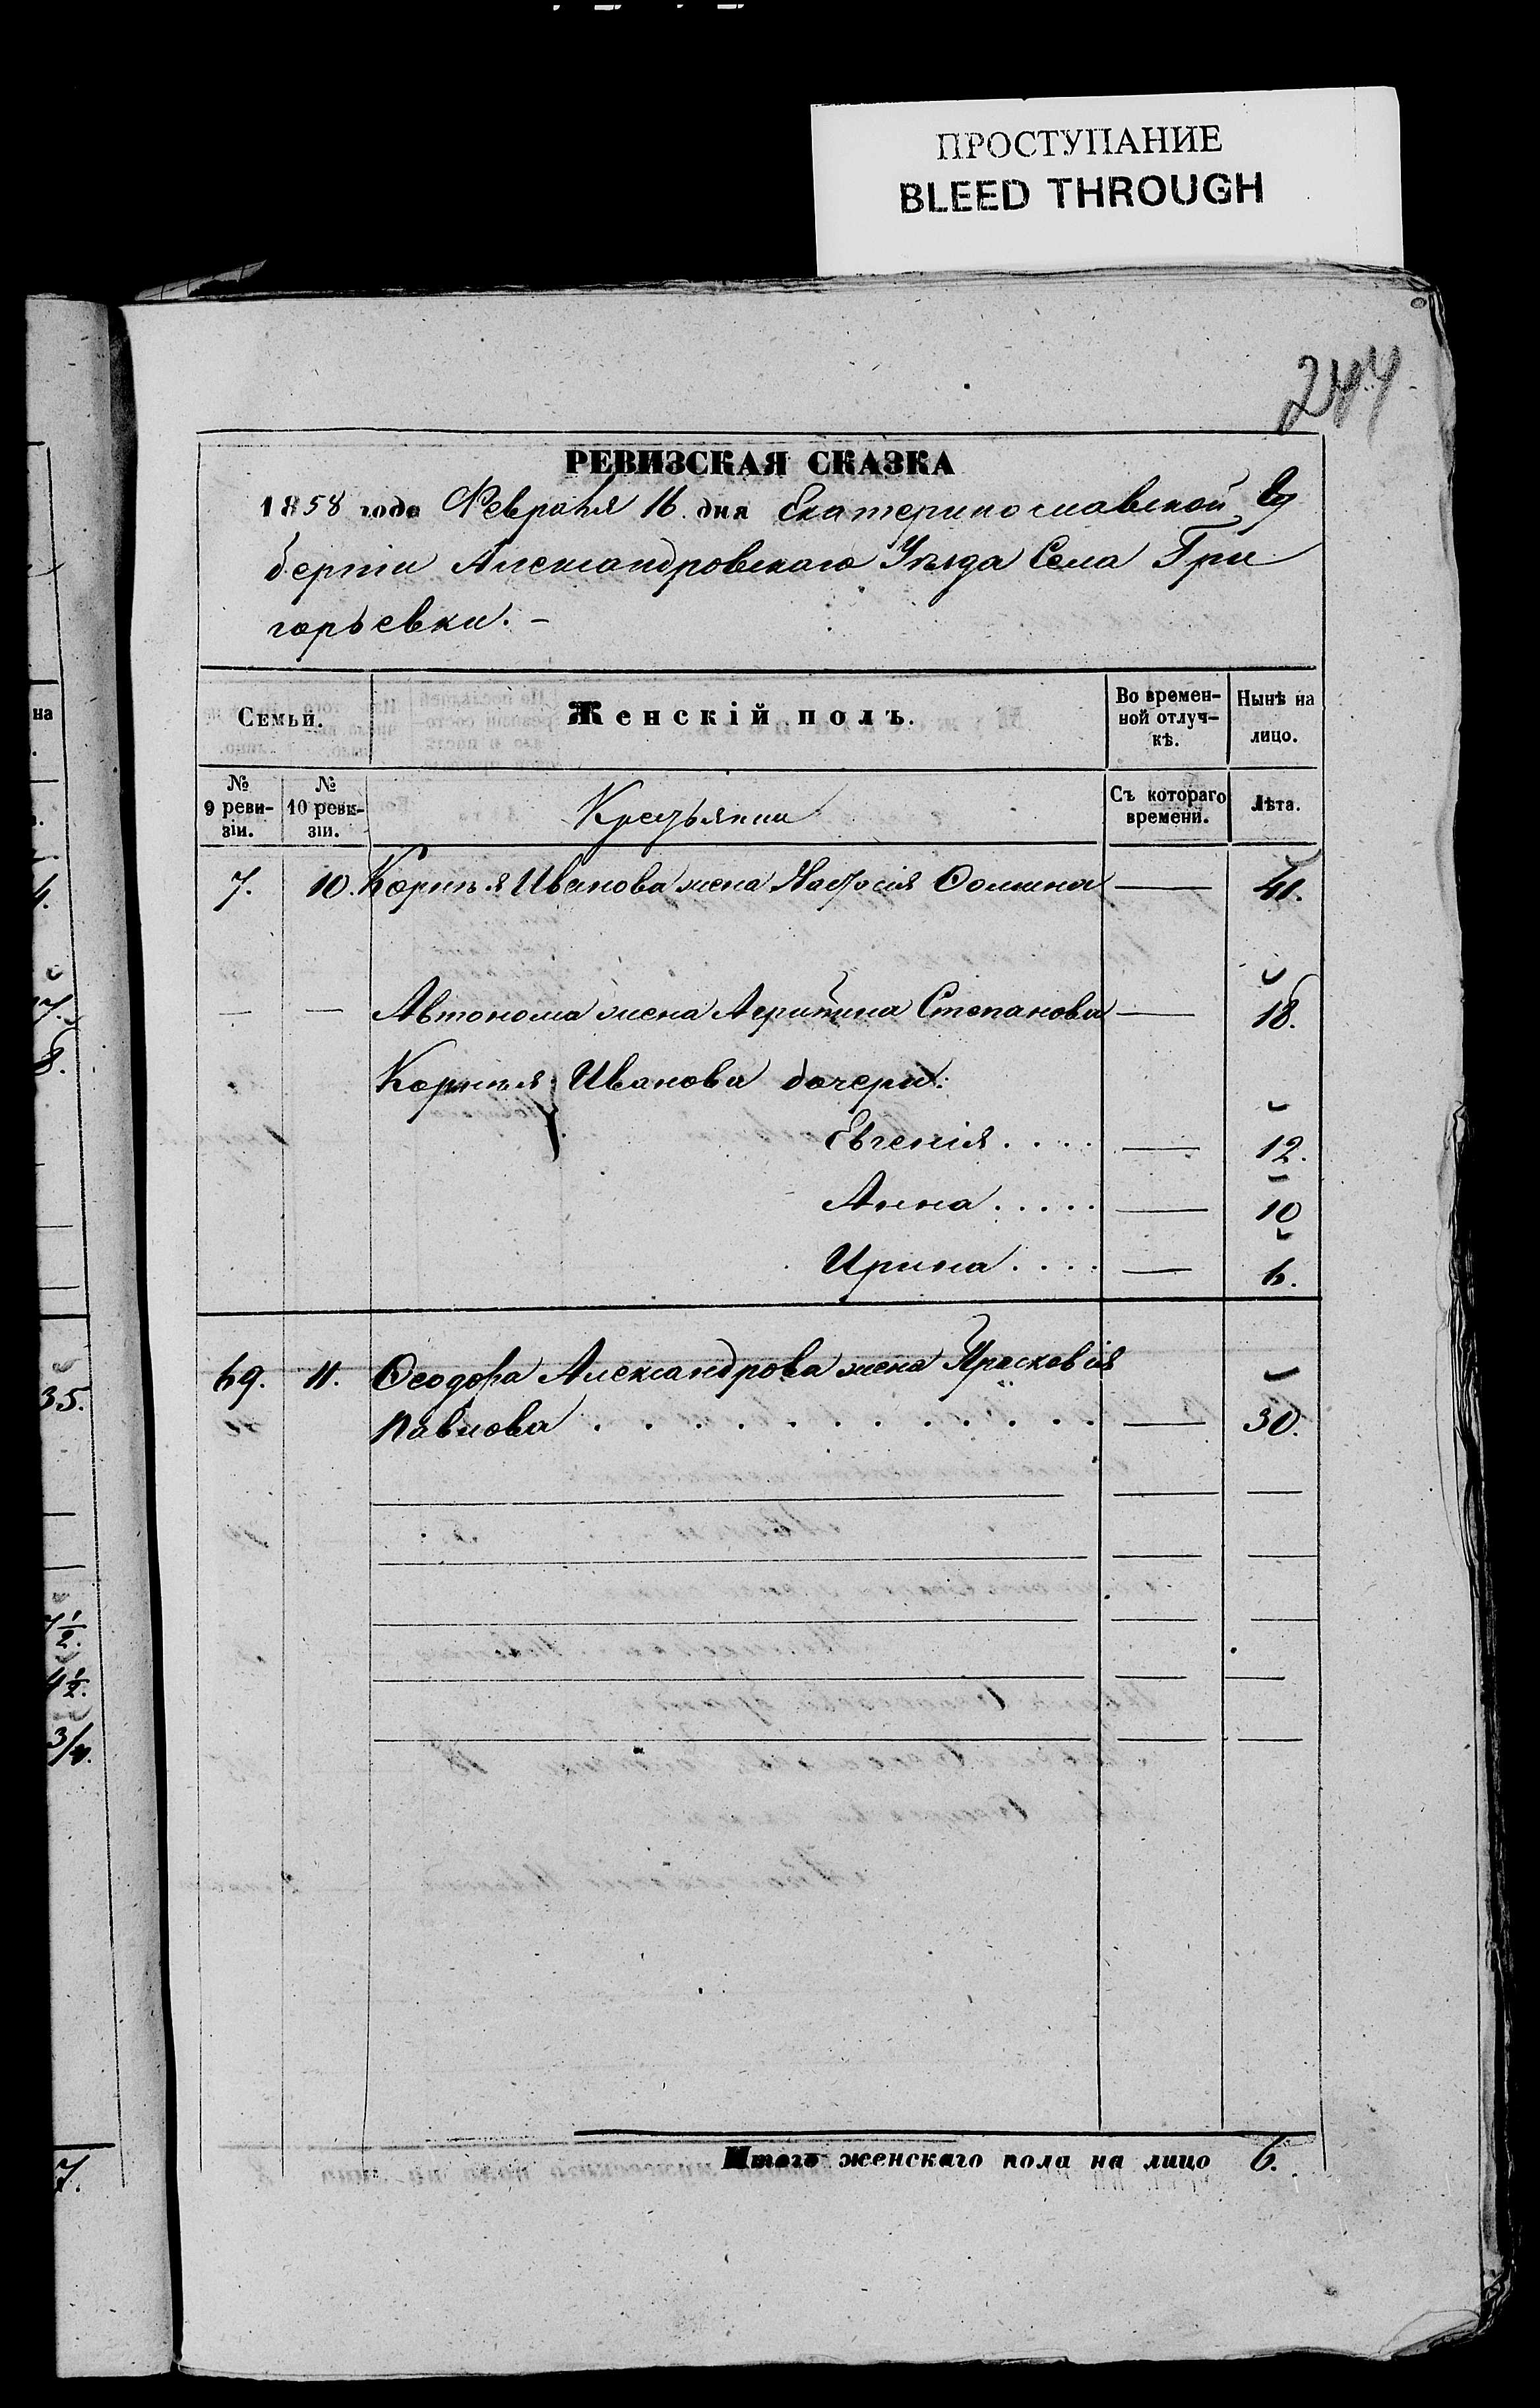 ПРОСТУПАНИЕ
BLEED THROUGH
244
РЕВИЗСКАЯ СКАЗКА
1858 года Февраля 16. дня Екатеринославской Гу
берніи Александровскаго Уѣзда Села Гри
горьевки. –
Семьи. Женскій полъ. Во времен- Нынѣ на
ной отлуч- лицо.
кѣ.
№ № Крестьяни Съ котораго Лѣта.
9 реви- 10 реви- времени.
зіи. зіи.
7. 10. Корнѣя Иванова жена Настосія Фомина — 41.
— — Автонома жена Агрипина Степанова — 18.
Корнѣя Иванова дочери:
Евгенія . . . . — 12.
Анна . . . . . — 10
Ирина . . . . — 6.
69. 11. Феодора Александрова жена Прасковія
Павлова . . . . . . . . . . . . — 30.
Итого женскаго пола на лицо 6.
на
4.
7.
8.
35.
1/2.
4 1/2.
3/4.
7.